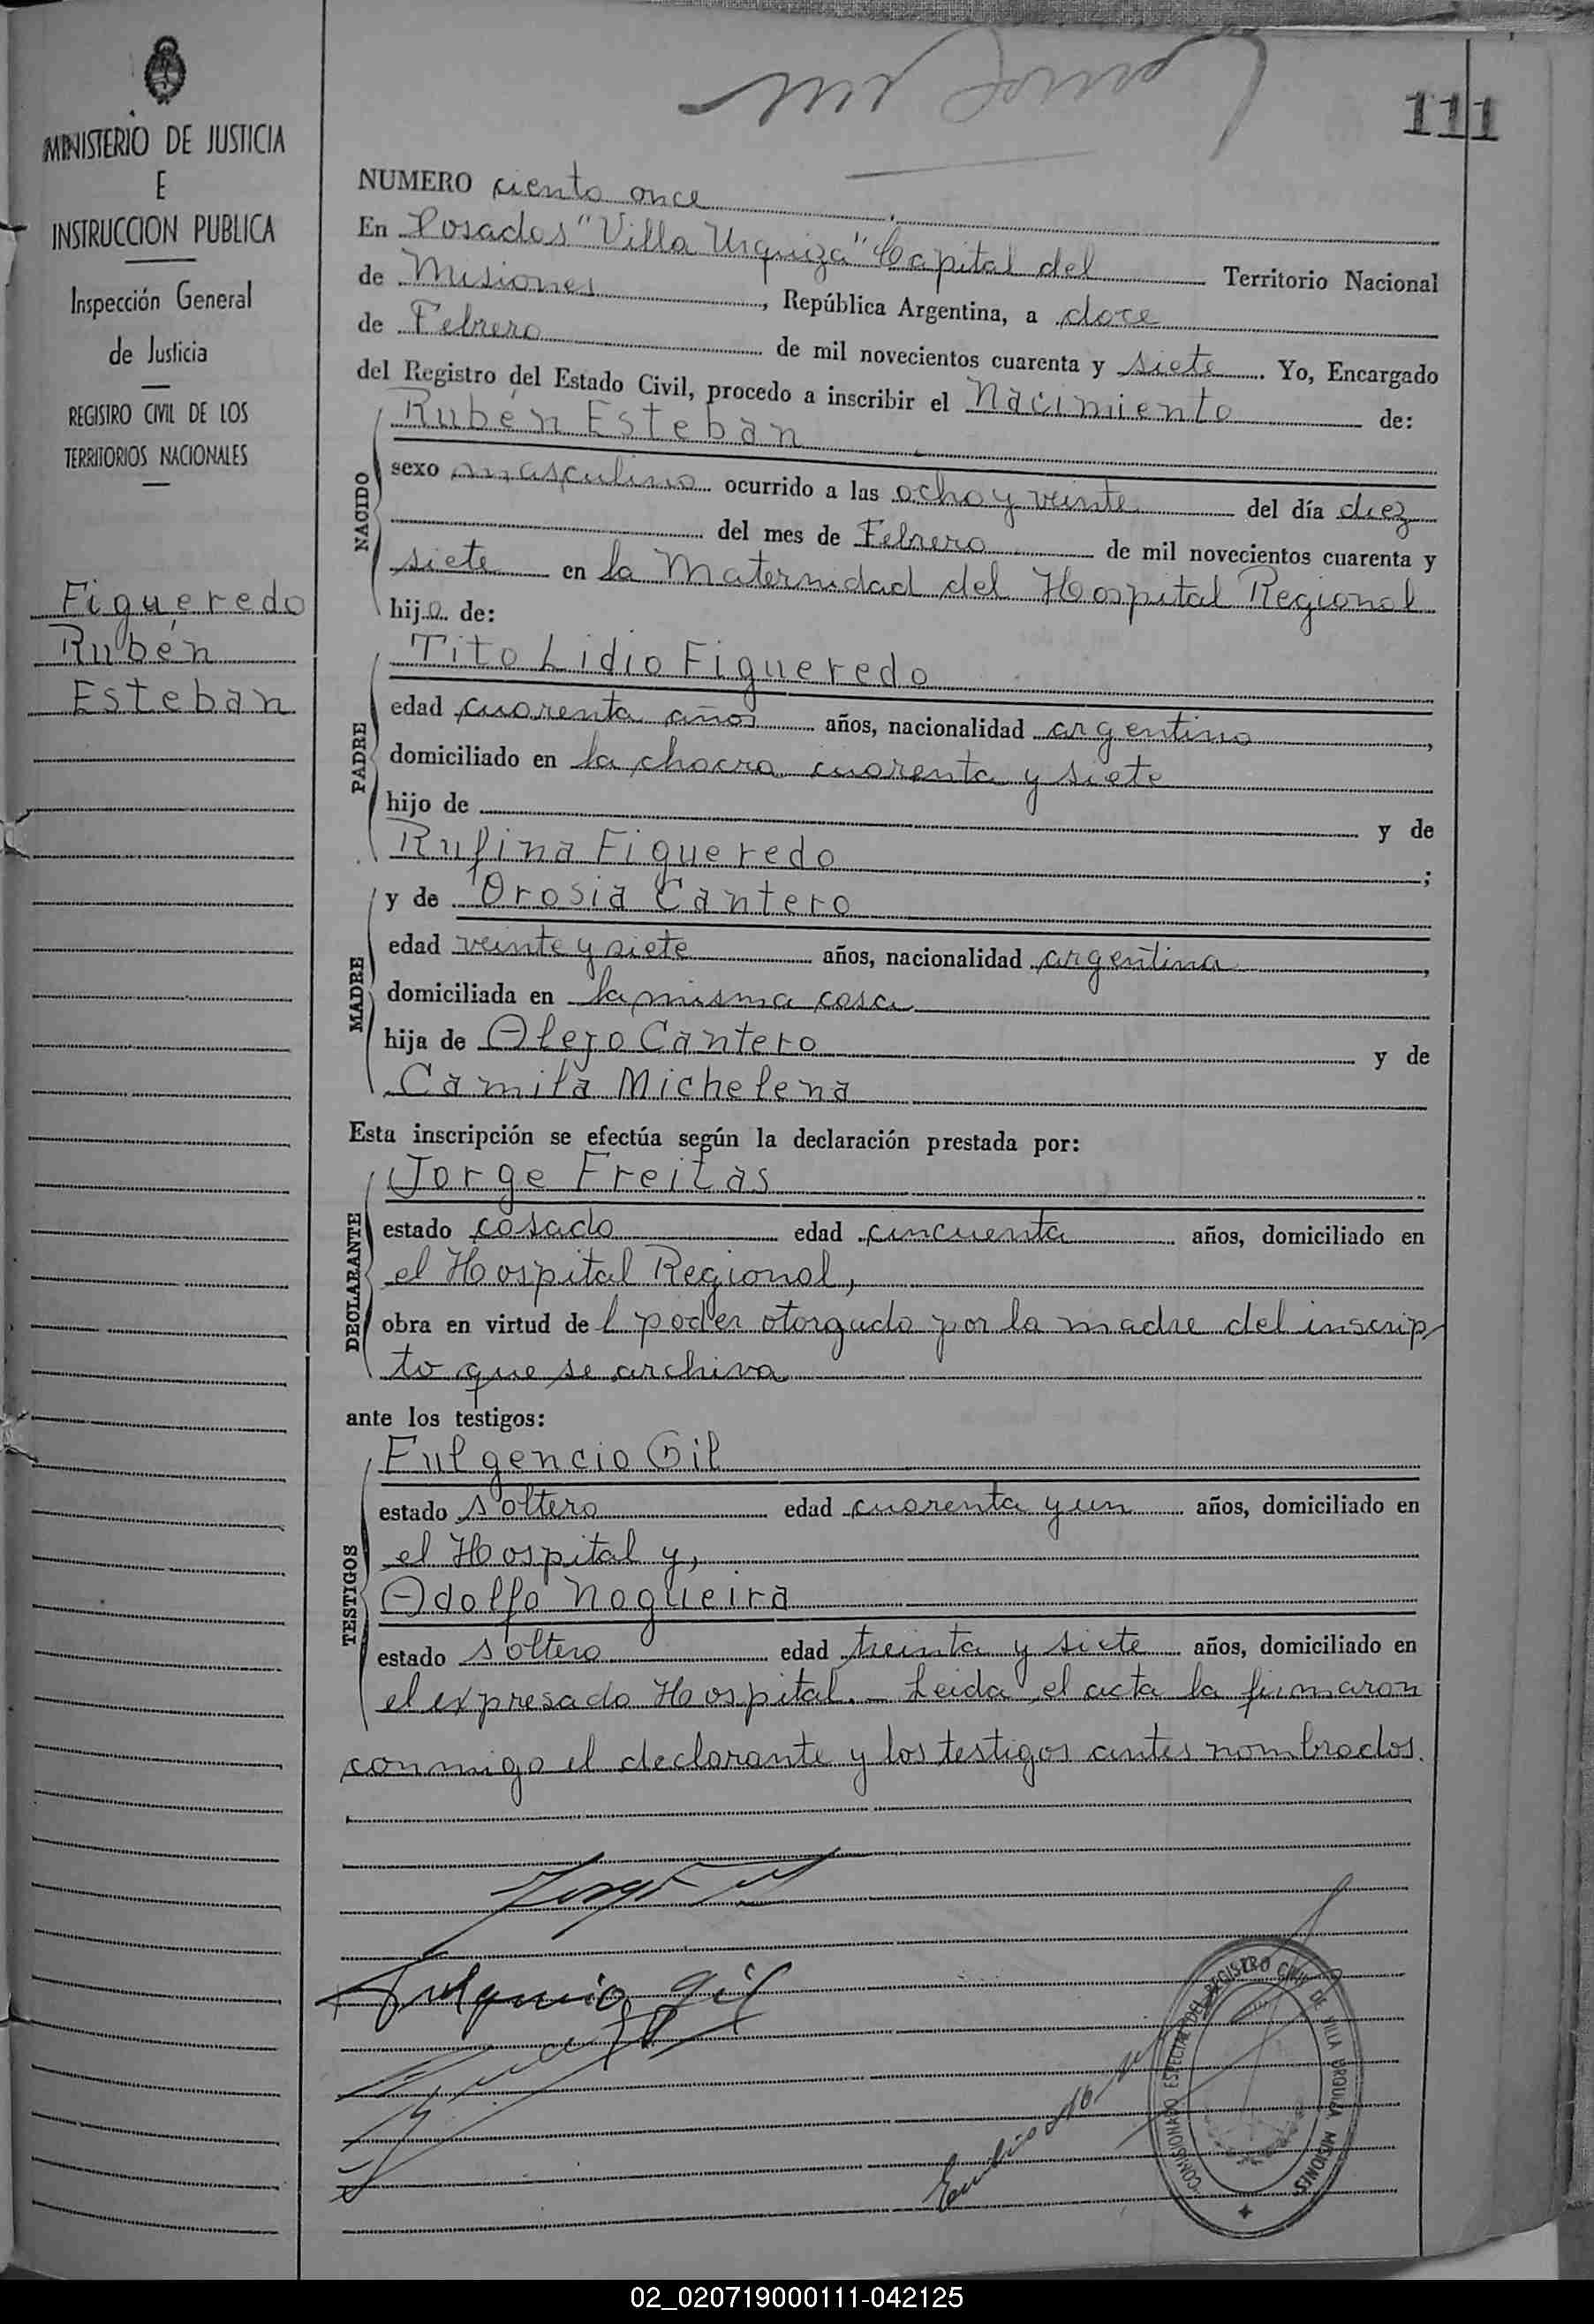 111
MINISTERIO DE JUSTICIA
E
INSTRUCCION PUBLICA
Inspección General
de Justicia
REGISTRO CIVIL DE LOS
TERRITORIOS NACIONALES
Figueredo
Rubén
Esteban
NUMERO ciento once
En Posadas "Villa Urquiza" Capital del Territorio Nacional
de Misiones, República Argentina, a doce
de Febrero de mil novecientos cuarenta y siete. Yo, Encargado
del Registro del Estado Civil, procedo a inscribir el Nacimiento de:
NACIDO
Rubén Esteban
sexo masculino ocurrido a las ocho y veinte del día diez
del mes de Febrero de mil novecientos cuarenta y
siete en la Maternidad del Hospital Regional
hijo de:
PADRE
Tito Lidio Figueredo
edad cuarenta años años, nacionalidad argentino,
domiciliado en la chacra cuarenta y siete
hijo de y de
Rufina Figueredo;
MADRE
y de Orosia Cantero
edad veinte y siete años, nacionalidad argentina,
domiciliada en la misma casa
hija de Alejo Cantero y de
Camila Michelena
Esta inscripción se efectúa según la declaración prestada por:
DECLARANTE
Jorge Freitas
estado casado edad cincuenta años, domiciliado en
el Hospital Regional,
obra en virtud del poder otorgado por la madre del inscrip-
to que se archiva
ante los testigos:
TESTIGOS
Fulgencio Gil
estado soltero edad cuarenta y un años, domiciliado en
el Hospital y,
Adolfo Nogueira
estado soltero edad treinta y siete años, domiciliado en
el expresado Hospital.- Leida el acta la firmaron
conmigo el declarante y los testigos antes nombrados.
Jorge
Fulgencio Gil
COMISIONADO ESPECIAL DEL REGISTRO CIVIL DE VILLA URQUIZA MISIONES
02_020719000111-042125